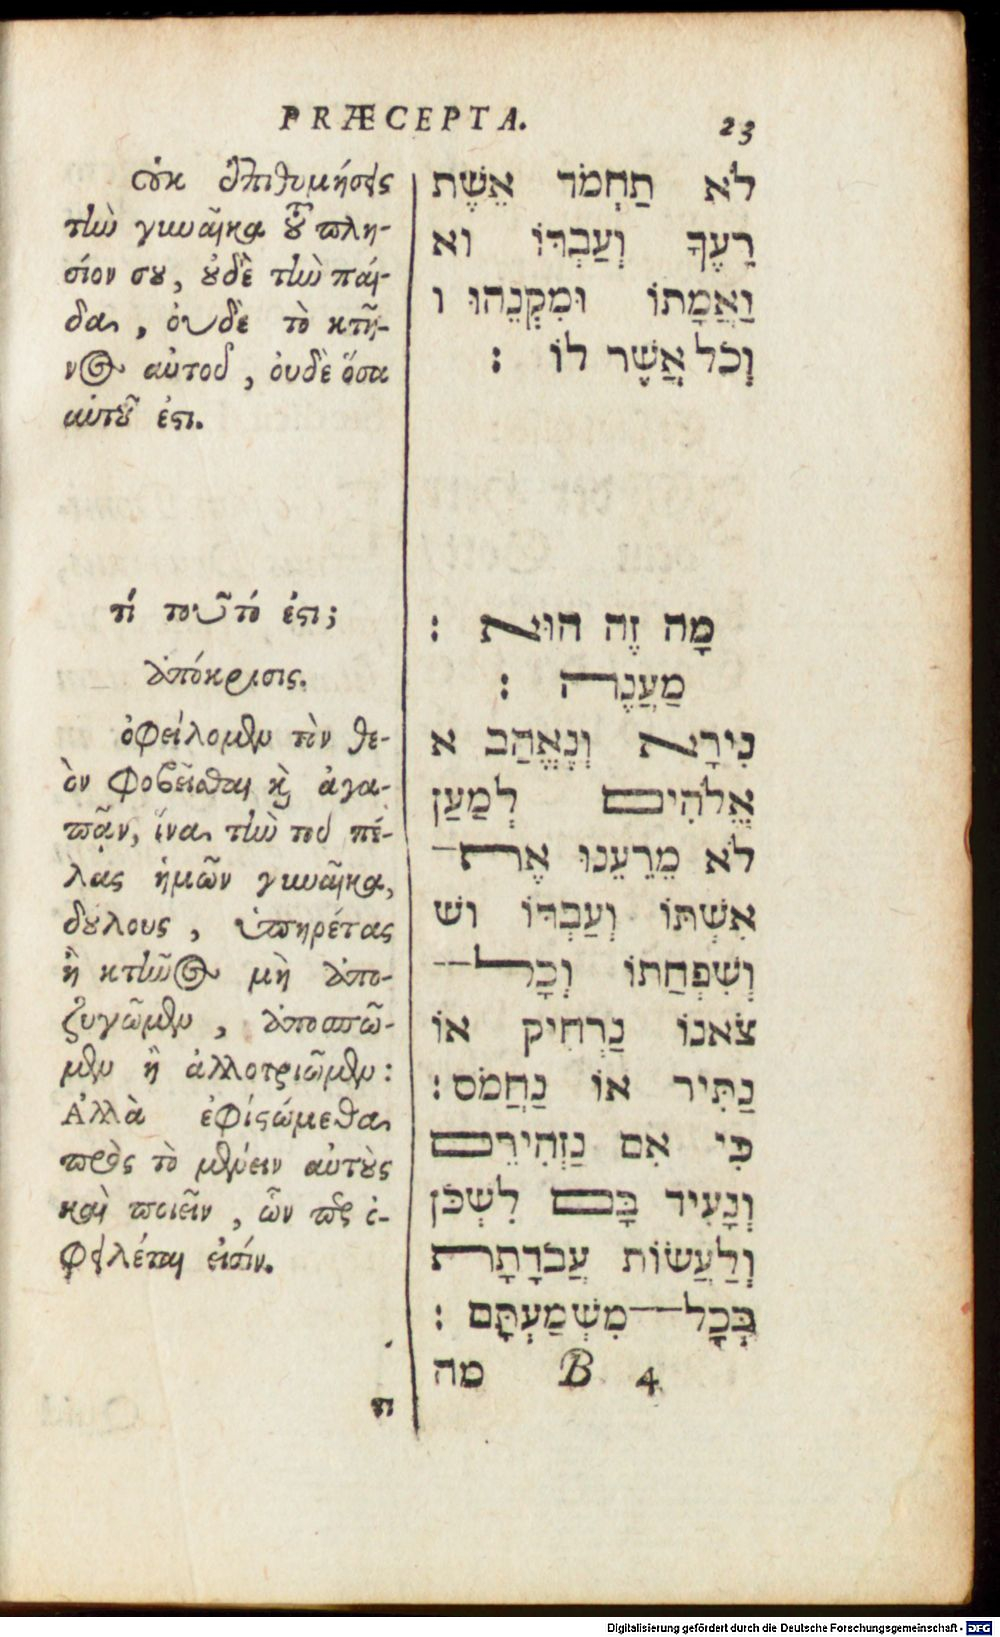 PRÆCEPTA. 23
οὐκ ἐπιθυμήσεις
τὴν γυναῖκα τοῦ πλη-
σίον σου, οὐδὲ τὴν παῖ-
δα, οὐδὲ τὸ κτῆ-
νος αὐτοῦ, οὐδὲ ὅσα
αὐτοῦ ἐστι.
τί τοῦτό ἐστι;
ἀπόκρισις.
ὀφείλομεν τὸν θε-
ὸν φοβεῖσθαι καὶ ἀγα-
πᾶν, ἵνα τὴν τοῦ πέ-
λας ἡμῶν γυναῖκα,
δούλους, ὑπηρέτας
ἢ κτῆνος μὴ ἀπο-
ζυγῶμεν, ἀποσπῶ-
μεν ἢ ἀλλοτριῶμεν:
Ἀλλὰ ἐφιστώμεθα
πρὸς τὸ μένειν αὐτοὺς
καὶ ποιεῖν, ὧν τῶς ὀ-
φειλέται εἰσίν.
τι
לֹא תַחְמֹד אֵשֶׁת
רֵעֶךָ וְעַבְדּוֹ וא
וַאֲמָתוֹ וּמִקְנֵהוּ ו
וְכֹל אֲשֶׁר לוֹ :
מָה זֶה הוּא :
מַעֲנֶה :
נִירָא וְנֶאֱהַב א
אֱלֹהִים לְמַעַן
לֹא מֵרֵעֵנוּ אֶת
אִשְׁתּוֹ וְעַבְדּוֹ וש
וְשִׁפְחָתוֹ וְכָל
צֹאנוֹ נַרְחִיק אוֹ
נַתִּיר אוֹ נַחֲמֹס :
כִּי אִם נַזְהִירֵם
וְנָעִיד בָּם לִשְׁכֹּן
וְלַעֲשׂוֹת עֲבֹדָתָם
בְּכָל מִשְׁמַעְתָּם :
B 4 מה
Digitalisierung gefördert durch die Deutsche Forschungsgemeinschaft - DFG